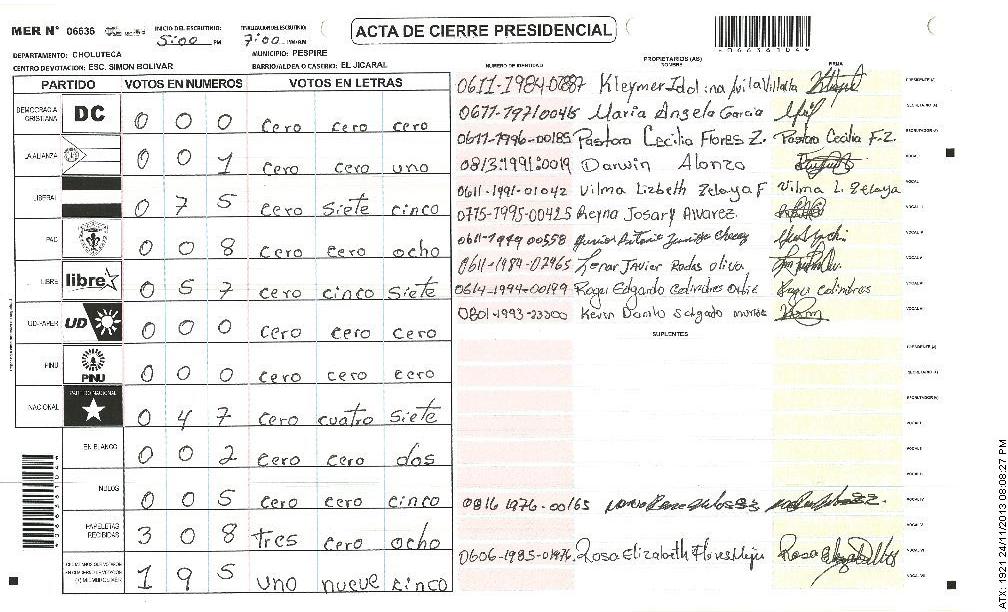 MER Nº 06636 INICIO DEL ESCRUTINIO: 5:00 PM FINALIZACION DEL ESCRUTINIO: 7:00 PM
ACTA DE CIERRE PRESIDENCIAL
DEPARTAMENTO: CHOLUTECA MUNICIPIO: PESPIRE
CENTRO DE VOTACION: ESC. SIMON BOLIVAR BARRIO/ALDEA O CASERIO: EL JICARAL
PARTIDO VOTOS EN NUMEROS VOTOS EN LETRAS
DEMOCRACIA CRISTIANA DC 0 0 0 cero cero cero
LA ALIANZA 0 0 1 cero cero uno
LIBERAL 0 7 5 cero siete cinco
PAC 0 0 8 cero cero ocho
LIBRE libre 0 5 7 cero cinco siete
UD-FAPER UD 0 0 0 cero cero cero
PINU PINU 0 0 0 cero cero cero
NACIONAL PARTIDO NACIONAL 0 4 7 cero cuatro siete
EN BLANCO 0 0 2 cero cero dos
NULOS 0 0 5 cero cero cinco
PAPELETAS RECIBIDAS 3 0 8 tres cero ocho
1 9 5 uno nueve cinco
PROPIETARIOS (AS)
NUMERO DE IDENTIDAD NOMBRE FIRMA
Kleymer Idolina
Maria Angela Garcia
0611-1996-00185 Pastora Cecilia Flores Z. Pastora Cecilia F-Z.
Darwin Alonzo
0611-1991-01042 Vilma Lizbeth Zelaya F Vilma L. Zelaya
-1995-00425 Reyna Josary Alvarez
0611-1984-02965 Lenar Javier Rodas Oliva
0614-1994-00199 Roger Edgardo Colindres Roger Colindres
Kevin Danilo Salgado
SUPLENTES
0816 1976-00165
Rosa Elizabeth Flores Mejia Rosa
ATX: 1921 24/11/2013 08:08:27 PM